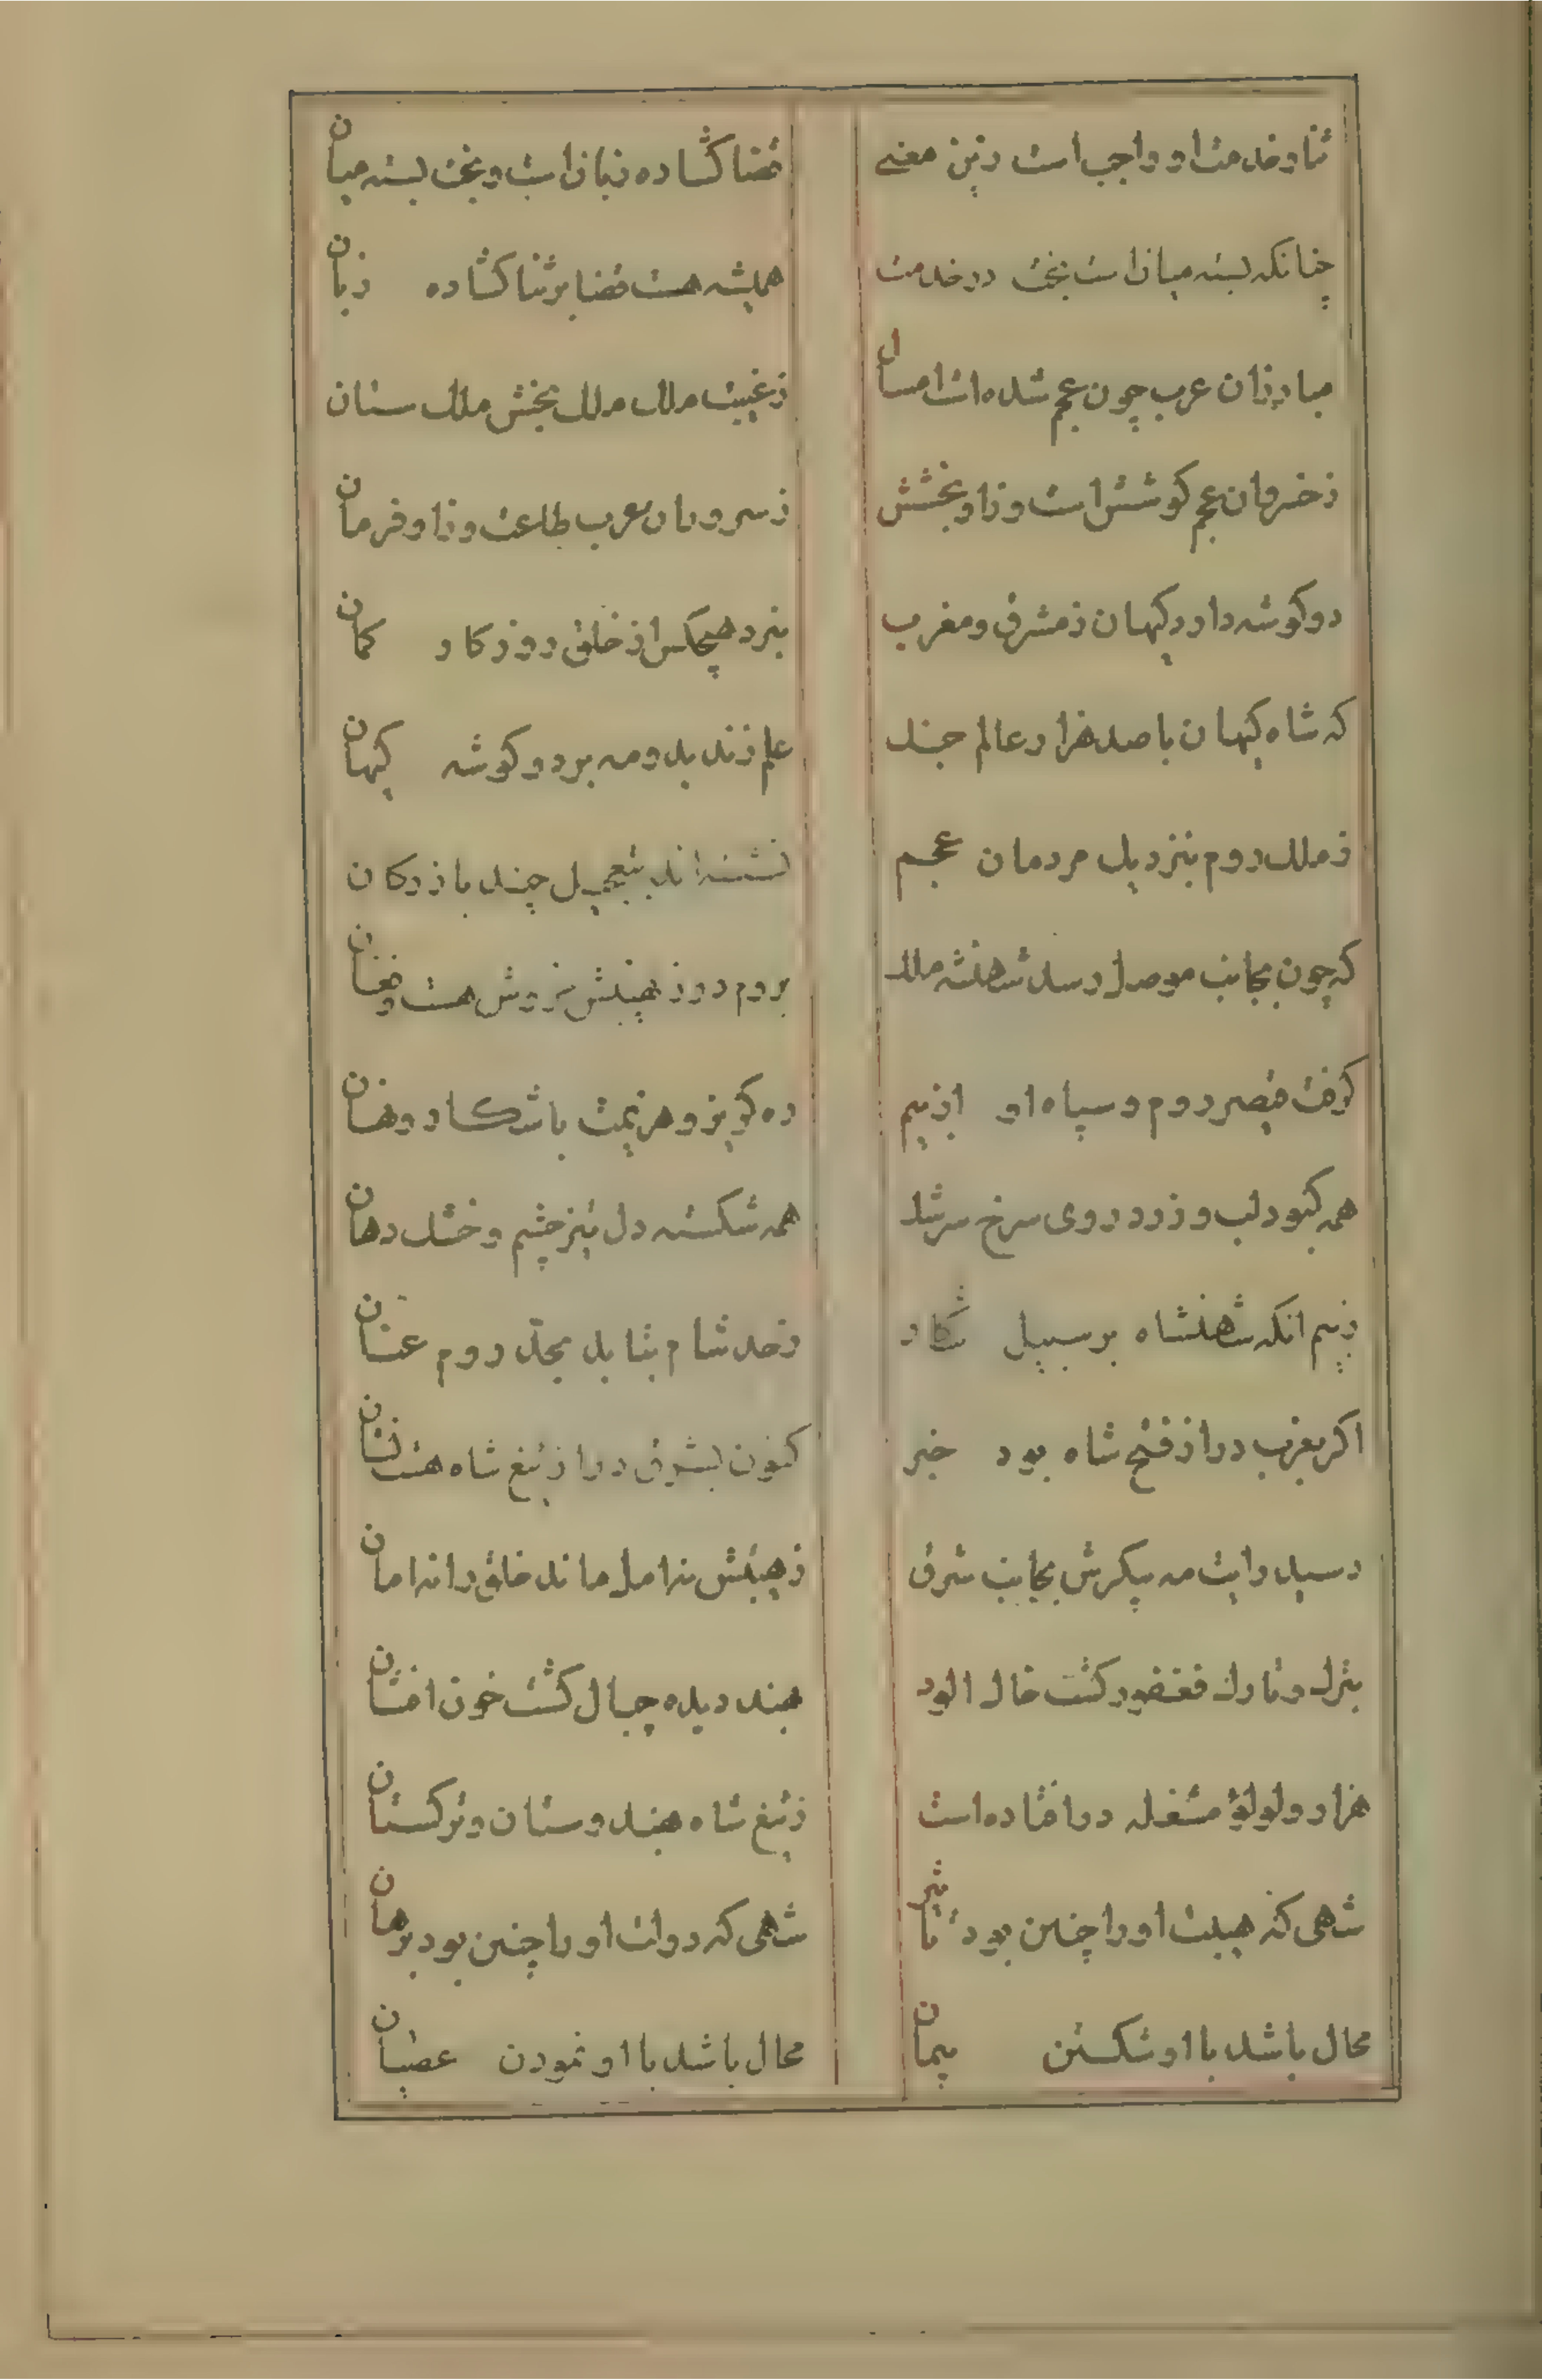 ثنا و خدمت او واجب است زین معنی
قضا کشاده زبان است و بخت بسته میان
چنانکه بسته میان است بخت در خدمت
همیشه هست قضا بر ثنا کشاده زبان
مبارزان عرب چون عجم شده است امسال
ز غیبت ملک ملک بخش ملک ستان
ز خسروان عجم کوشش است وز او بخشش
ز سروران عرب طاعت وز او فرمان
دو کوشه دارد کیهان ز مشرق و مغرب
نبرد هیچکس از خلق روزکار کمان
که شاه کیهان با صد هزار عالم جند
علم زند بدو مه بر دو کوشه کیهان
ز ملک روم بنزدیک مردمان عجم
نشسته اند بتعجیل چند بازرکان
که چون بجانب موصل رسد شهنشه ملک
بروم در ز هیبتش خروش هست و فغان
کرفت قیصر روم و سپاه او از بیم
ره کریز و هزیمت باشکار و نهان
همه کبود لب و زرد روی سرخ سرشک
همه شکسته دل تیز چشم و خشک دهان
ز بیم انکه شهنشاه بر سبیل شکار
ز حد شام بتابد بحد روم عنان
اکر بغرب در از فتح شاه بود خبر
کنون بشرق در از تیغ شاه هست نشان
رسید رایت مه پیکرش بجانب شرق
ز هیبتش نه امل ماند خلق را نه امان
بترک و تارک فغفور کشت خاک الود
بهند دیده چیپال کشت خون افشان
هزار و لوله و مشغله در افتاده است
ز تیغ شاه هندوستان و ترکستان
شهی که هیبت او را چنین بود تاثیر
شهی که دولت او را چنین بود برهان
محال باشد با او شکستن پیمان
محال باشد با او نمودن عصیان